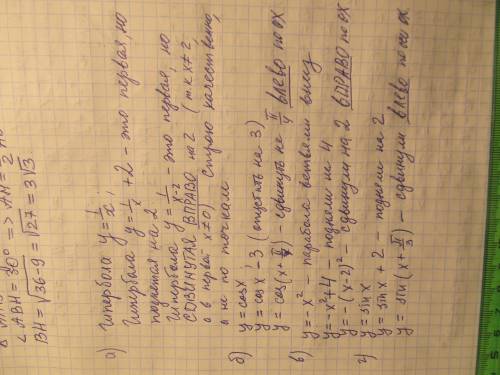 ∠ABH = 30° => AH = 1/2 AB
BH = √(36-9) = √27 = 3√3
а) Гипербола y = 1/x;
Гипербола y = 1/x + 2 - это первая, но
поднятая на 2
Гипербола y = 1/(x-2) - это первая, но
СДВИНУТАЯ ВПРАВО на 2 (т.к x≠2,
а в первой x≠0) Строго качественно,
а не по точкам
б) y = cosx
y = cosx - 3 (опустить на 3)
y = cos(x + π/4) - сдвинуть на π/4 влево по ox
в) y = -x² - парабола ветвями вниз
y = -x² + 4 - подняли на 4
y = -(x-2)² - сдвинули на 2 ВПРАВО по OX
г) y = sinx
y = sinx + 2 - подняли на 2
y = sin(x + π/3) - сдвинули влево по оси ox